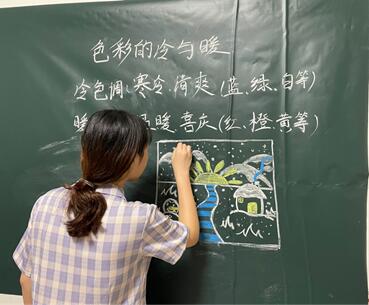 色彩的冷与暖
冷色调:寒冷、清爽(蓝、绿、白等)
暖 暖、喜庆(红、橙、黄等)